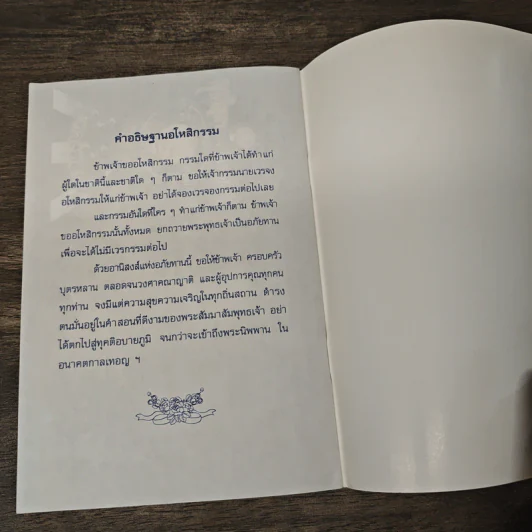 คำอธิษฐานอโหสิกรรม
ข้าพเจ้าขออโหสิกรรม กรรมใดที่ข้าพเจ้าได้ทำแก่
ผู้ใดในชาตินี้และชาติใด ๆ ก็ตาม ขอให้เจ้ากรรมนายเวรจง
อโหสิกรรมให้แก่ข้าพเจ้า อย่าได้จองเวรจองกรรมต่อไปเลย
และกรรมอันใดที่ใคร ๆ ทำแก่ข้าพเจ้าก็ตาม ข้าพเจ้า
ขออโหสิกรรมนั้นทั้งหมด ยกถวายพระพุทธเจ้าเป็นอภัยทาน
เพื่อจะได้ไม่มีเวรกรรมต่อไป
ด้วยอานิสงส์แห่งอภัยทานนี้ ขอให้ข้าพเจ้า ครอบครัว
บุตรหลาน ตลอดจนวงศาคณาญาติ และผู้อุปการคุณทุกคน
ทุกท่าน จงมีแต่ความสุขความเจริญในทุกถิ่นสถาน ดำรง
ตนมั่นอยู่ในคำสอนที่ดีงามของพระสัมมาสัมพุทธเจ้า อย่า
ได้ตกไปสู่ทุคติอบายภูมิ จนกว่าจะเข้าถึงพระนิพพาน ใน
อนาคตกาลเทอญ ฯ